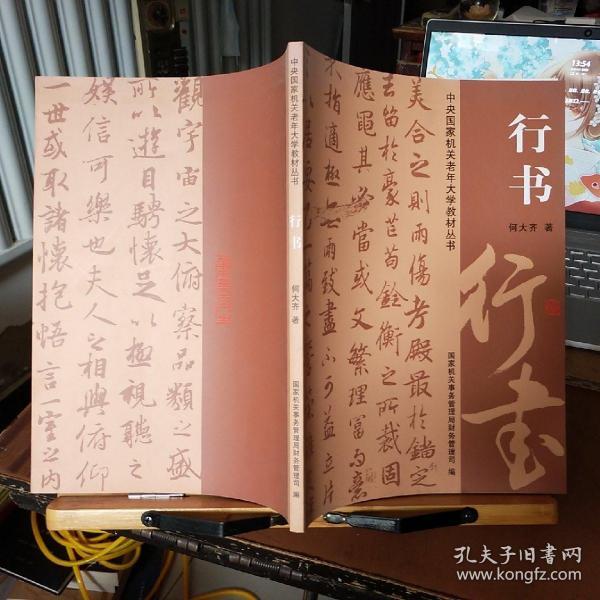 行书
何大齐 著
中央国家机关老年大学教材丛书
行書
国家机关事务管理局财务管理司 编
美合之則兩傷考殿最於錙定
去留於豪芒苟銓衡之所裁固
應繩其必當或文繁理富而意
不指適極無兩致盡不可益立片
中央国家机关老年大学教材丛书
行书
何大齐 著
国家机关事务管理局财务管理司 编
觀宇宙之大俯察品類之盛
所以遊目騁懷足以極視聽之
娛信可樂也夫人之相與俯仰
一世或取諸懷抱悟言一室之內
13:54
孔夫子旧书网
www.kongfz.com